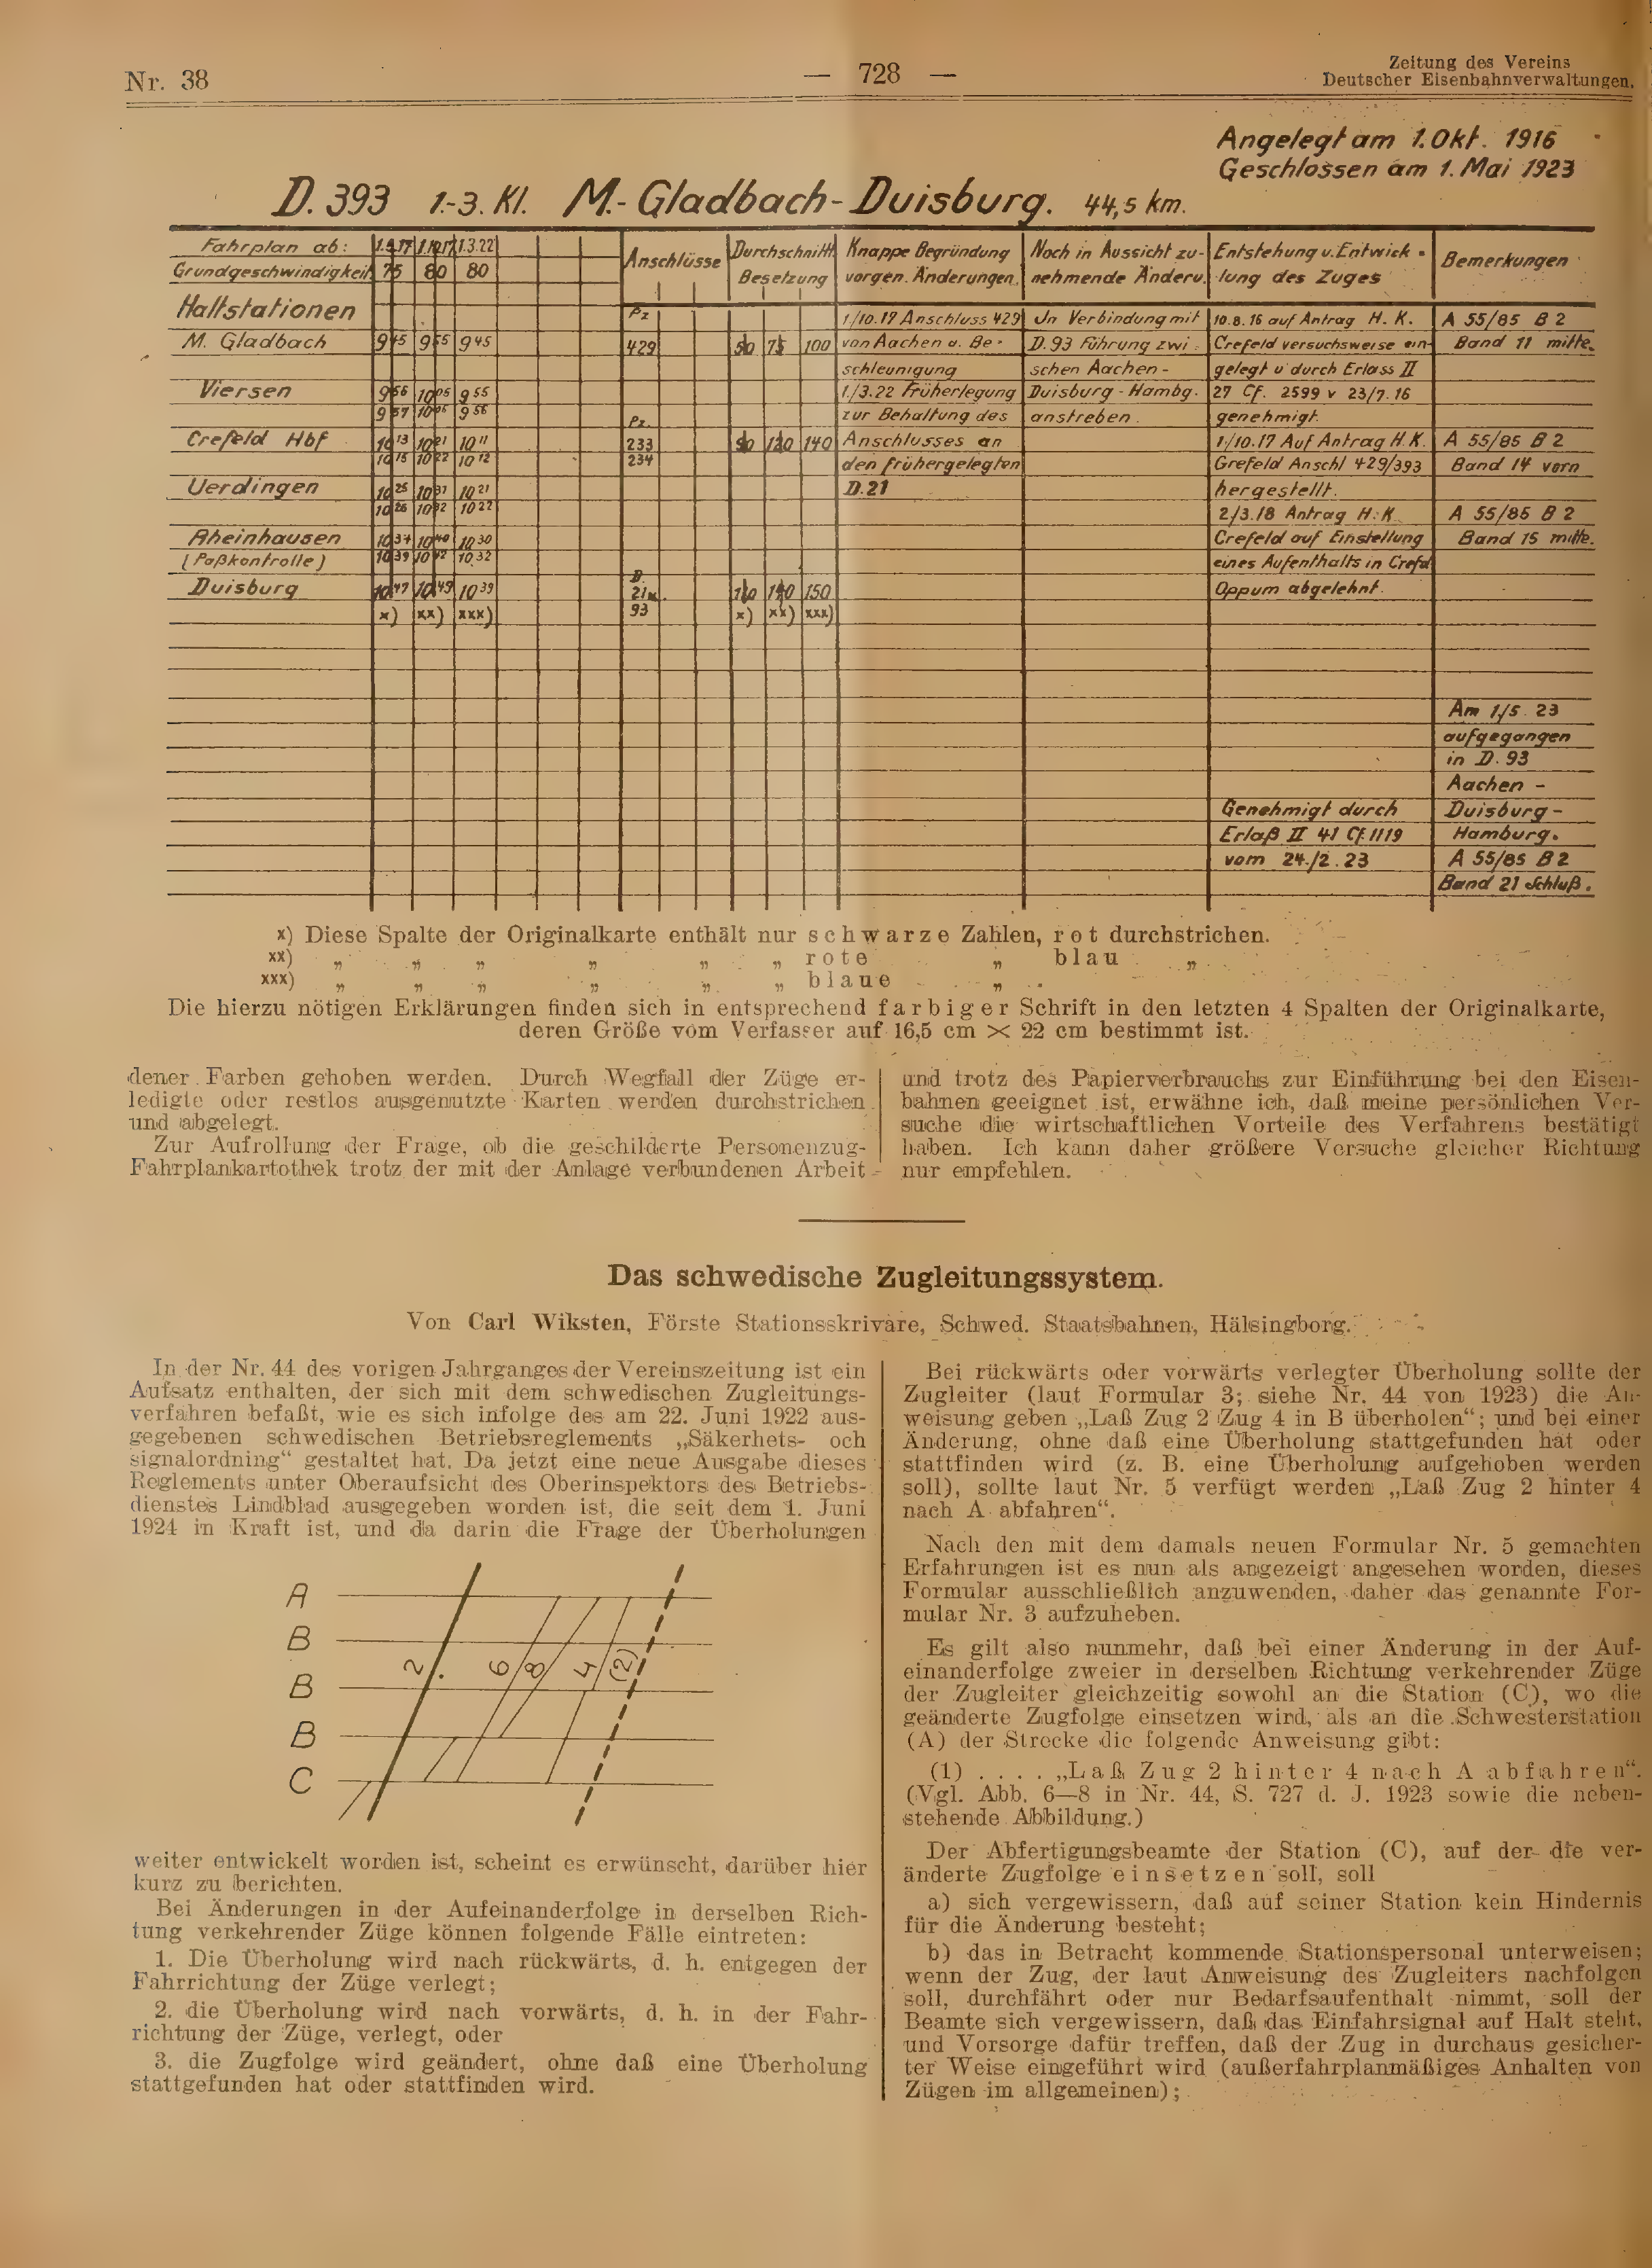 Nr. 38
— 728 —
Zeitung des Vereins
Deutscher Eisenbahnverwaltungen.
Angelegt am 1. Okt. 1916
Geschlossen am 1. Mai 1923
D. 393 1.-3. Kl. M.-Gladbach-Duisburg. 44,5 km.
Fahrplan ab: 1.3.22
Grundgeschwindigkeit 75 80 80
Anschlüsse
Durchschnittl. Besetzung
Knappe Begründung vorgen. Änderungen.
Noch in Aussicht zu- nehmende Änderu.
Entstehung u. Entwick- lung des Zuges
Bemerkungen
Haltstationen Pz 1/10.17 Anschluss 429 Jn Verbindung mit 10.8.16 auf Antrag H. K. A 55/85 B 2
M. Gladbach 9 45 9 55 9 45 429 50 75 100 von Aachen u. Be- D. 93 Führung zwi- Crefeld versuchsweise ein- Band 11 mitte.
schleunigung schen Aachen- gelegt u durch Erlass II
Viersen 9 56 10 05 9 55 1./3.22 Früherlegung Duisburg-Hambg. 27 Cf. 2599 v 23/7.16
9 57 10 06 9 56 Pz. zur Behaltung des anstreben. genehmigt.
Crefeld Hbf 10 13 10 21 10 11 233 120 140 Anschlusses an 1./10.17 Auf Antrag H.K. A 55/85 B 2
10 15 10 22 10 12 234 den frühergelegten Crefeld Anschl 429/393 Band 14 vorn
Uerdingen 10 25 10 31 10 21 D.21 hergestellt.
10 26 10 32 10 22 2/3.18 Antrag H.K. A 55/85 B 2
Rheinhausen 10 34 10 40 10 30 Crefeld auf Einstellung Band 15 mitte.
(Paßkontrolle) 10 39 10 42 10 32 eines Aufenthalts in Crefd
Duisburg 10 47 10 49 10 39 D. 21 150 Oppum abgelehnt.
x) xx) xxx) 93 x) xx) xxx)
Am 1/5. 23
aufgegangen
in D. 93
Aachen -
Genehmigt durch Duisburg-
Erlaß II 41 Cf. 1119 Hamburg.
vom 24./2. 23 A 55/85 B 2
Band 21 Schluß.
x) Diese Spalte der Originalkarte enthält nur schwarze Zahlen, rot durchstrichen.
xx) „ „ „ „ „ „ rote „ blau „
xxx) „ „ „ „ „ „ blaue „
Die hierzu nötigen Erklärungen finden sich in entsprechend farbiger Schrift in den letzten 4 Spalten der Originalkarte,
deren Größe vom Verfasser auf 16,5 cm × 22 cm bestimmt ist.
dener Farben gehoben werden. Durch Wegfall der Züge er-
ledigte oder restlos ausgenutzte Karten werden durchstrichen
und abgelegt.
Zur Aufrollung der Frage, ob die geschilderte Personenzug-
Fahrplankartothek trotz der mit der Anlage verbundenen Arbeit
und trotz des Papierverbrauchs zur Einführung bei den Eisen-
bahnen geeignet ist, erwähne ich, daß meine persönlichen Ver-
suche die wirtschaftlichen Vorteile des Verfahrens bestätigt
haben. Ich kann daher größere Versuche gleicher Richtung
nur empfehlen.
Das schwedische Zugleitungssystem.
Von Carl Wiksten, Förste Stationsskrivare, Schwed. Staatsbahnen, Hälsingborg.
In der Nr. 44 des vorigen Jahrganges der Vereinszeitung ist ein
Aufsatz enthalten, der sich mit dem schwedischen Zugleitungs-
verfahren befaßt, wie es sich infolge des am 22. Juni 1922 aus-
gegebenen schwedischen Betriebsreglements „Säkerhets- och
signalordning“ gestaltet hat. Da jetzt eine neue Ausgabe dieses
Reglements unter Oberaufsicht des Oberinspektors des Betriebs-
dienstes Lindblad ausgegeben worden ist, die seit dem 1. Juni
1924 in Kraft ist, und da darin die Frage der Überholungen
A
B
B
B
C
2 6 8 4 (2)
weiter entwickelt worden ist, scheint es erwünscht, darüber hier
kurz zu berichten.
Bei Änderungen in der Aufeinanderfolge in derselben Rich-
tung verkehrender Züge können folgende Fälle eintreten:
1. Die Überholung wird nach rückwärts, d. h. entgegen der
Fahrrichtung der Züge verlegt;
2. die Überholung wird nach vorwärts, d. h. in der Fahr-
richtung der Züge, verlegt, oder
3. die Zugfolge wird geändert, ohne daß eine Überholung
stattgefunden hat oder stattfinden wird.
Bei rückwärts oder vorwärts verlegter Überholung sollte der
Zugleiter (laut Formular 3; siehe Nr. 44 von 1923) die An-
weisung geben „Laß Zug 2 Zug 4 in B überholen“; und bei einer
Änderung, ohne daß eine Überholung stattgefunden hat oder
stattfinden wird (z. B. eine Überholung aufgehoben werden
soll), sollte laut Nr. 5 verfügt werden „Laß Zug 2 hinter 4
nach A abfahren“.
Nach den mit dem damals neuen Formular Nr. 5 gemachten
Erfahrungen ist es nun als angezeigt angesehen worden, dieses
Formular ausschließlich anzuwenden, daher das genannte For-
mular Nr. 3 aufzuheben.
Es gilt also nunmehr, daß bei einer Änderung in der Auf-
einanderfolge zweier in derselben Richtung verkehrender Züge
der Zugleiter gleichzeitig sowohl an die Station (C), wo die
geänderte Zugfolge einsetzen wird, als an die Schwesterstation
(A) der Strecke die folgende Anweisung gibt:
(1) . . . . „Laß Zug 2 hinter 4 nach A abfahren“.
(Vgl. Abb. 6—8 in Nr. 44, S. 727 d. J. 1923 sowie die neben-
stehende Abbildung.)
Der Abfertigungsbeamte der Station (C), auf der die ver-
änderte Zugfolge einsetzen soll, soll
a) sich vergewissern, daß auf seiner Station kein Hindernis
für die Änderung besteht;
b) das in Betracht kommende Stationspersonal unterweisen;
wenn der Zug, der laut Anweisung des Zugleiters nachfolgen
soll, durchfährt oder nur Bedarfsaufenthalt nimmt, soll der
Beamte sich vergewissern, daß das Einfahrsignal auf Halt steht,
und Vorsorge dafür treffen, daß der Zug in durchaus gesicher-
ter Weise eingeführt wird (außerfahrplanmäßiges Anhalten von
Zügen im allgemeinen);